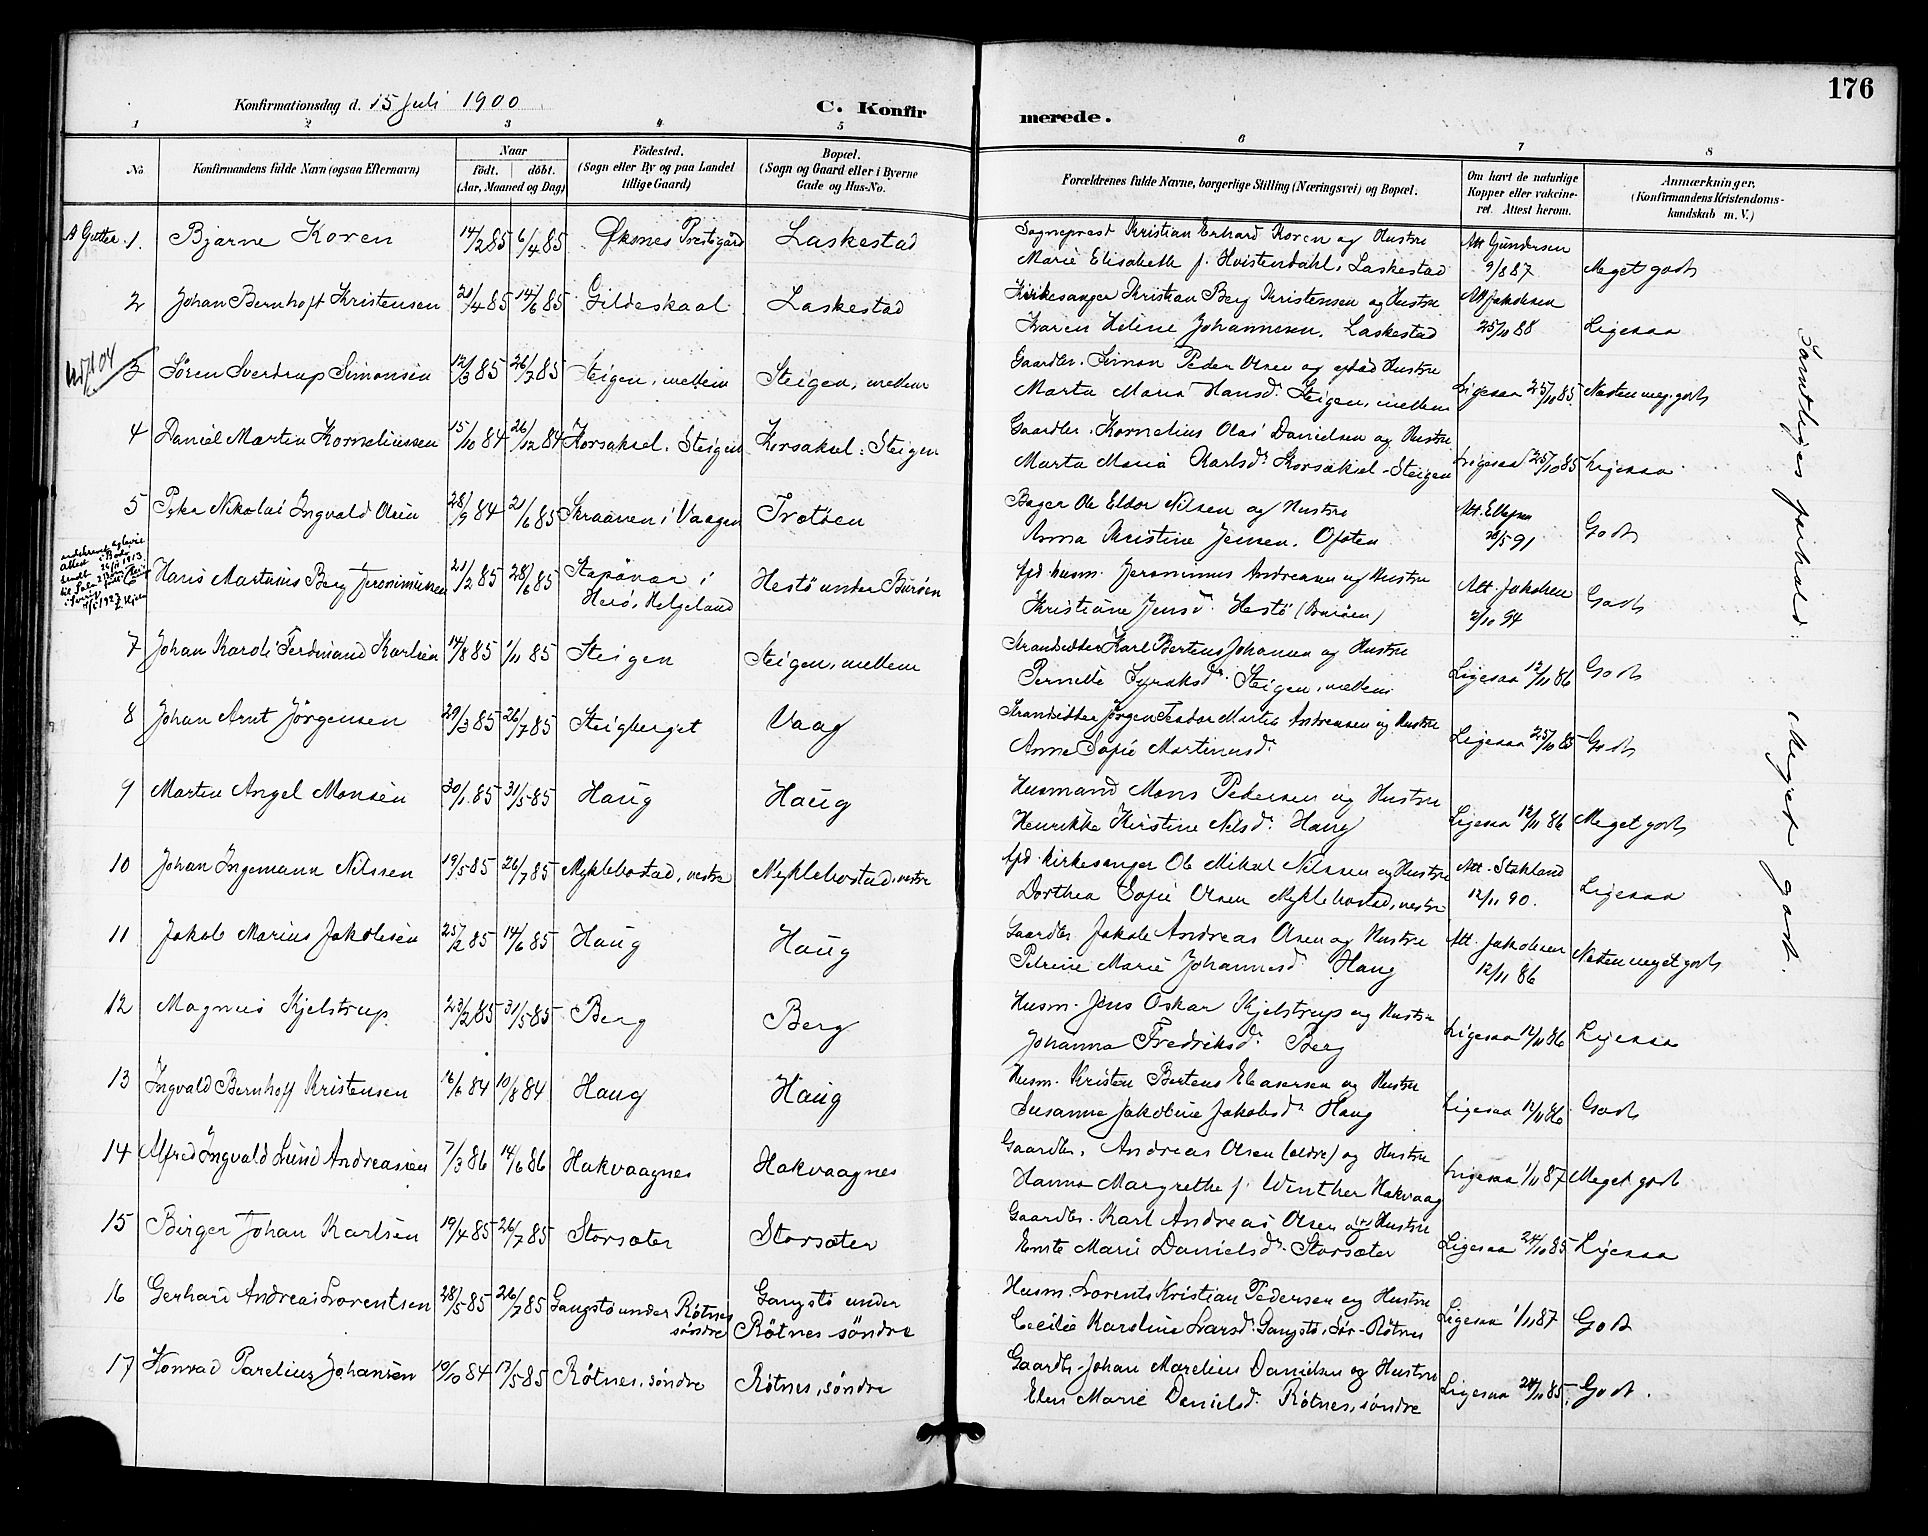 176
Konfirmationsdag d. 15 Juli 1900
C. Konfir merede.
1 2 3 4 5 6 7 8
No
Konfirmandens fulde Navn (ogsaa Efternavn)
Naar
födt. döbt.
(Aar, Maaned og Dag)
Födested.
(Sogn eller By og paa Landet
tillige Gaard)
Bopæl.
(Sogn og Gaard eller i Byerne
Gade og Hus-No.
Forældrenes fulde Navne, borgerlige Stilling (Næringsvei) og Bopæl.
Om havt de naturlige
Kopper eller vakcine-
ret. Attest herom.
Anmærkninger.
(Konfirmandens Kristendoms-
kundskab m. V.)
A Gutter. 1. Bjarne Koren 14/2 85 6/4 85 Øksnes Prestegård Laskestad
Sogneprest Kristian Erhard Koren og Hustru Att Gundersen
Marie Elisabeth f. Hvistendahl, Laskestad 9/8 87 Meget godt
2 Johan Bernhoft Kristensen 21/4 85 14/6 85 Gildeskaal Laskestad
Kirkesanger Kristian Berg Kristensen og Hustru Att Jakobsen
Karen Helene Johannesen, Laskestad 25/10 88 Ligesaa
3 Søren Sverdrup Simonsen 12/3 85 26/7 85 Steigen, mellem Steigen, mellem
Gaardbr. Simon Peder Olsen og Hustru
Marta Maria Hansd. Steigen, mellem Ligesaa 25/10 85 Næsten meg. godt
4 Daniel Martin Korneliussen 15/10 84 26/12 84 Korsaksel. Steigen Korsaksel. Steigen
Gaardbr. Kornelius Olai Danielsen og Hustru
Marta Maria Karlsd. Korsaksel - Steigen Ligesaa 25/10 85 Ligesaa
5 Peter Nikolai Ingvald Olsen 28/9 84 21/6 85 Skraaven i Vaagen Trotøen
Bager Ole Eldor Nilsen og Hustru Att. Ellefsen
Anna Kristine Jensen. Ofoten 28/5 91 Godt
Hans Martinius Berg Jeronimussen 21/2 85 28/6 85 Stapövær i
Herö, Helgeland Hestö under Burøen
fhd. husm. Jeronimus Andreasen og Hustru Att. Jakobsen
Kristiane Jensd. Hestö (Burøen) 2/10 94 Godt
7 Johan Karoli Ferdinand Karlsen 14/8 85 1/11 85 Steigen Steigen, mellem
Strandsidder Karl Bertens Johansen og Hustru
Pernelle Syraksd. Steigen, mellem Ligesaa 12/11 86 Godt
8 Johan Arnt Jörgensen 29/3 85 26/7 85 Steigberget Vaag
Strandsidder Jørgen Teodor Martin Andreasen og Hustru
Anne Sofie Martinusd. Ligesaa 25/10 85 Godt
9 Martin Angel Monsen 30/1 85 31/5 85 Haug Haug
Husmand Mons Pedersen og Hustru
Henrikke Kirstine Nilsd. Haug Ligesaa 12/11 86 Meget godt
10 Johan Ingemann Nilssen 19/5 85 26/7 85 Myklebostad, vestre Myklebostad, vestre
fhd. Kirkesanger Ole Mikal Nilssen og Hustru Att. Stokland
Dorthea Sofie Olsen Myklebostad, vestre 12/11 90. Ligesaa
11 Jakob Marius Jakobsen 25/2 85 14/6 85 Haug Haug
Gaardbr. Jakob Andreas Olsen og Hustru Att. Jakobsen
Petrine Marie Johannesd. Haug 12/11 86 Næsten meget godt
12 Magnus Kjelstrup. 23/2 85 31/5 85 Berg Berg
Husm. Jens Oskar Kjelstrup og Hustru
Johanna Fredriksd. Berg Ligesaa 12/11 86 Ligesaa
13 Ingvald Bernhoff Kristensen 16/6 84 10/8 84 Haug Haug
Husm. Kristen Bertens Eleasersen og Hustru
Susanna Jakobine Jakobsd. Haug Ligesaa 12/11 86 Godt
14 Alfred Ingvald Lund Andreassen 7/3 86 14/6 86 Hakvaagnes Hakvaagnes
Gaardbr. Andreas Olsen (ældre) og Hustru
Hanna Margrethe f. Winther Hakvaag Ligesaa 1/11 87 Meget godt
15 Birger Johan Karlsen 19/4 85 26/7 85 Storsæter Storsæter
Gaardbr. Karl Andreas Olsen og Hustru
Enste Marie Danielsd. Storsæter Ligesaa 24/10 85 Ligesaa
16 Gerhard Andreas Lorentsen 28/5 85 26/7 85 Gangstö under Rötnes
søndre Gangstö under
Rötnes söndre
Husm. Lorents Kristian Pedersen og Hustru
Cecilie Karoline Larsd. Gangstö, Sör-Rötnes Ligesaa 1/11 87 Godt
17 Konrad Parelius Johansen 19/10 84 17/5 85 Rötnes, søndre Rötnes, søndre
Gaardbr. Johan Marelius Danielsen og Hustru
Elen Marie Danielsd. Rötnes, søndre Ligesaa 24/10 85. Godt.
Samtliges forhold: Meget godt.